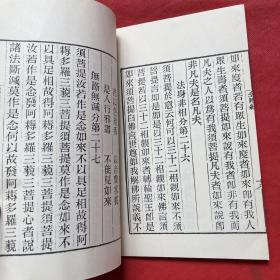 如來度者若有眾生如來度者如來即有我人
眾生壽者須菩提如來說有我者即非有我而
凡夫之人以為有我須菩提凡夫者如來說即
非凡夫是名凡夫
法身非相分第二十六
須菩提於意云何可以三十二相觀如來不須
菩提言如是如是以三十二相觀如來佛言須
菩提若以三十二相觀如來者轉輪聖王即是
如來須菩提白佛言世尊如我解佛所說義不
是人行邪道 不能見如來
無斷無滅分第二十七
須菩提汝若作是念如來不以具足相故得阿
耨多羅三藐三菩提須菩提莫作是念如來不
以具足相故得阿耨多羅三藐三菩提須菩提
汝若作是念發阿耨多羅三藐三菩提心者說
諸法斷滅莫作是念何以故發阿耨多羅三藐